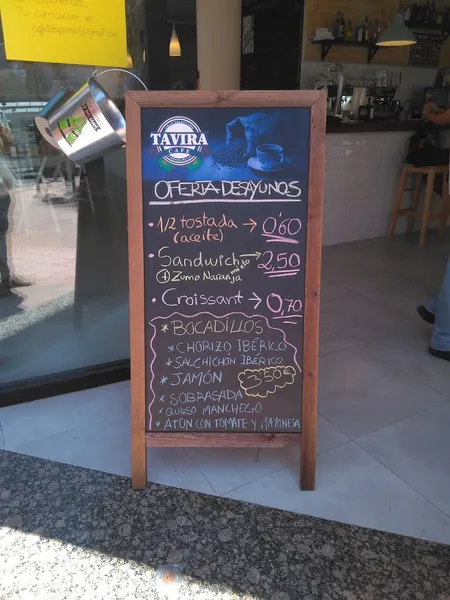 Tu curriculum en
TAVIRA
CAFÉ
OFERTA DESAYUNOS
• 1/2 tostada → 0'60
(aceite)
• Sandwich mixto → 2,50
+ Zumo Naranja
• Croissant → 0,70
* BOCADILLOS
* CHORIZO IBÉRICO
* SALCHICHÓN IBÉRICO
* JAMÓN 3,50€
* SOBRASADA
* QUESO MANCHEGO
* ATÚN CON TOMATE Y MAYONESA